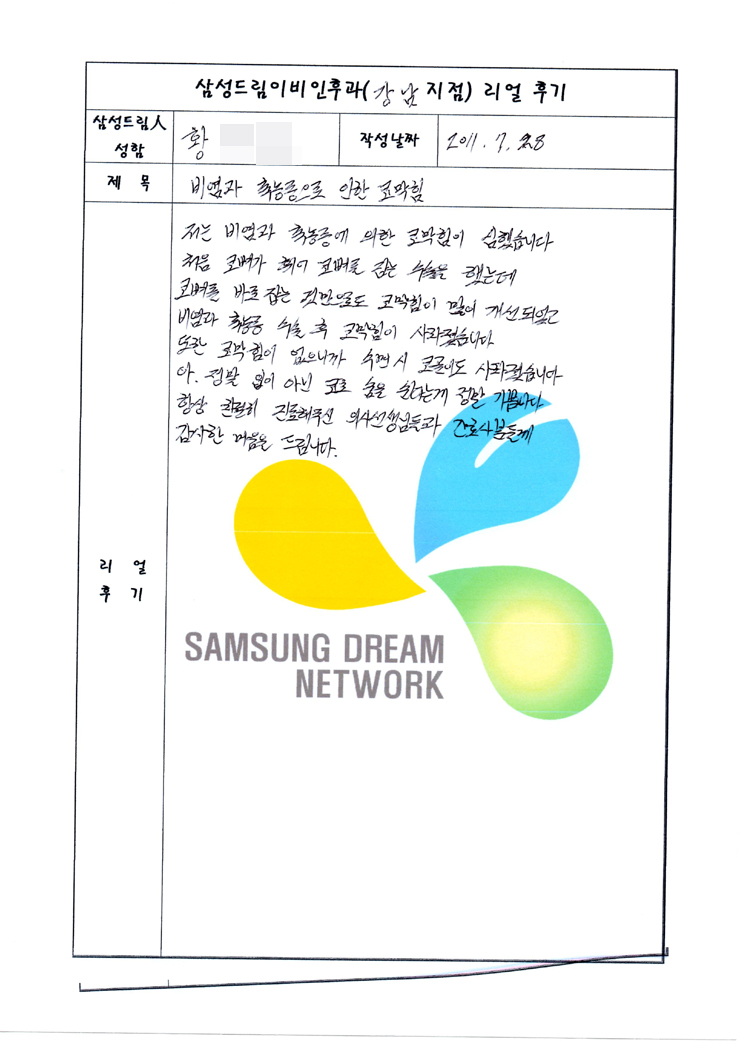 삼성드림이비인후과(강남지점) 리얼 후기
삼성드림人 성함
황
작성날짜
2011. 7. 28
제 목
비염과 축농증으로 인한 코막힘
저는 비염과 축농증에 의한 코막힘이 심했습니다
처음 코뼈가 휘어 코뼈를 잡는 수술을 했는데
코뼈를 바로 잡는 것만으로도 코막힘이 많이 개선되었고
비염과 축농증 수술 후 코막힘이 사라졌습니다
또한 코막힘이 없으니까 수면시 코골이도 사라졌습니다
아. 정말 입이 아닌 코로 숨을 쉰다는게 정말 기쁩니다
항상 친절히 진료해주신 의사선생님들과 간호사분들께
감사한 마음을 드립니다.
리 얼
후 기
SAMSUNG DREAM
NETWORK